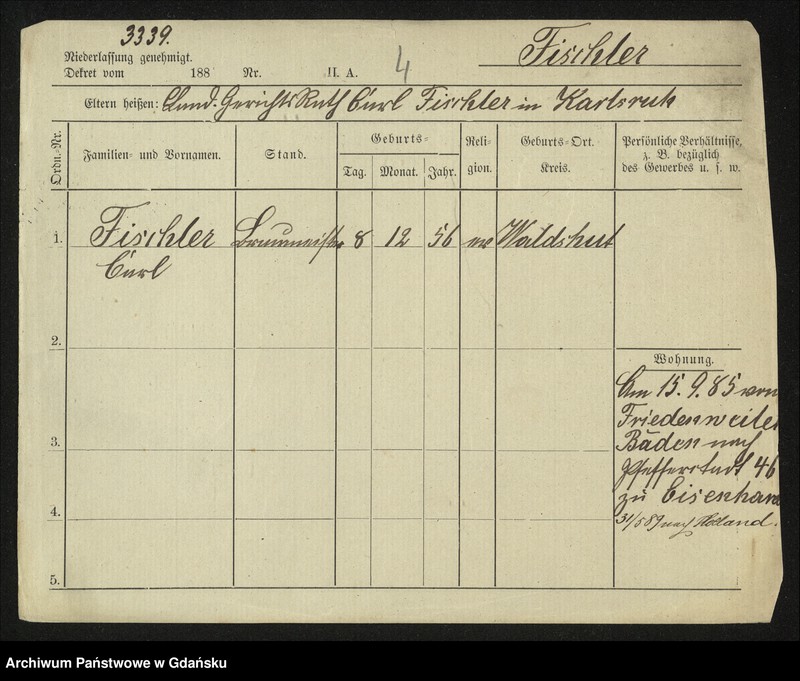 3339.
Niederlassung genehmigt.
Dekret vom 188 Nr. II. A.
4
Fischler
Eltern heißen: Land. Gerichts Rath Carl Fischler in Karlsruh
Ordn.-Nr.
Familien- und Vornamen.
Stand.
Geburts-
Tag. Monat. Jahr.
Reli-
gion.
Geburts-Ort.
Kreis.
Persönliche Verhältnisse,
z. B. bezüglich
des Gewerbes u. s. w.
1. Fischler Braumeister 8 12 56 ev Waldshut
Carl
2.
3.
4.
5.
Wohnung.
Am 15. 9. 85 von
Friedenweiler
Baden nach
Pfefferstadt 46
zu Eisenhard
31/5 89 nach Holland.
Archiwum Państwowe w Gdańsku